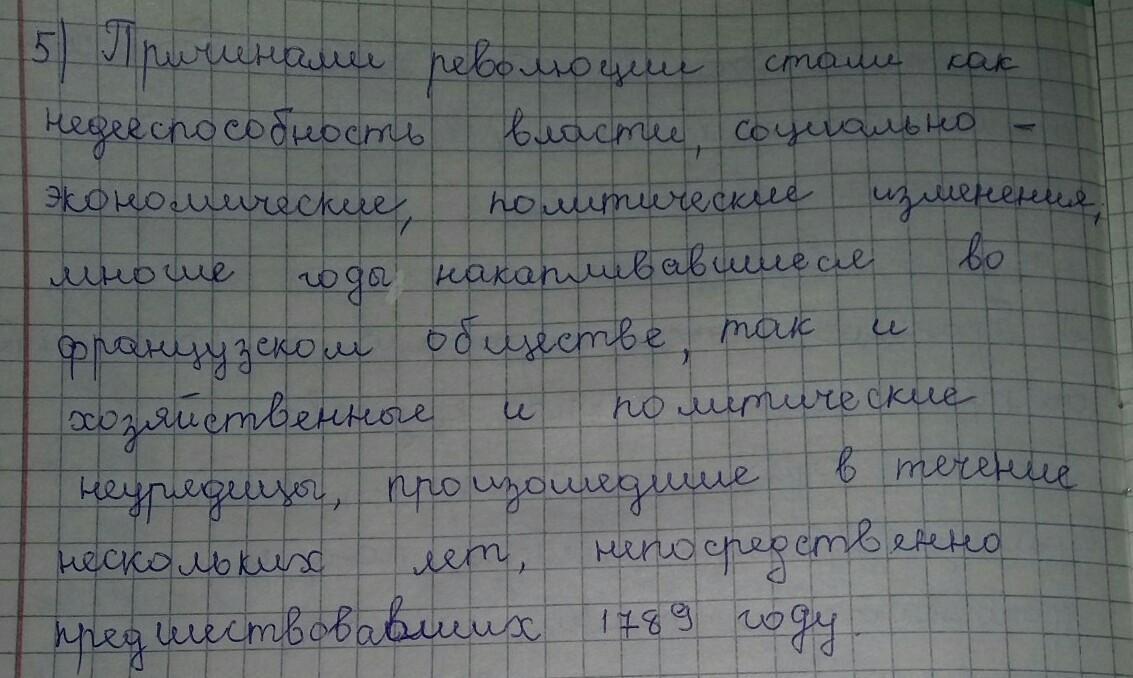 5) Причинами революции стали как
недееспособность власти, социально -
экономические, политические изменения,
многие годы накапливавшиеся во
французском обществе, так и
хозяйственные и политические
неурядицы, произошедшие в течение
нескольких лет, непосредственно
предшествовавших 1789 году.